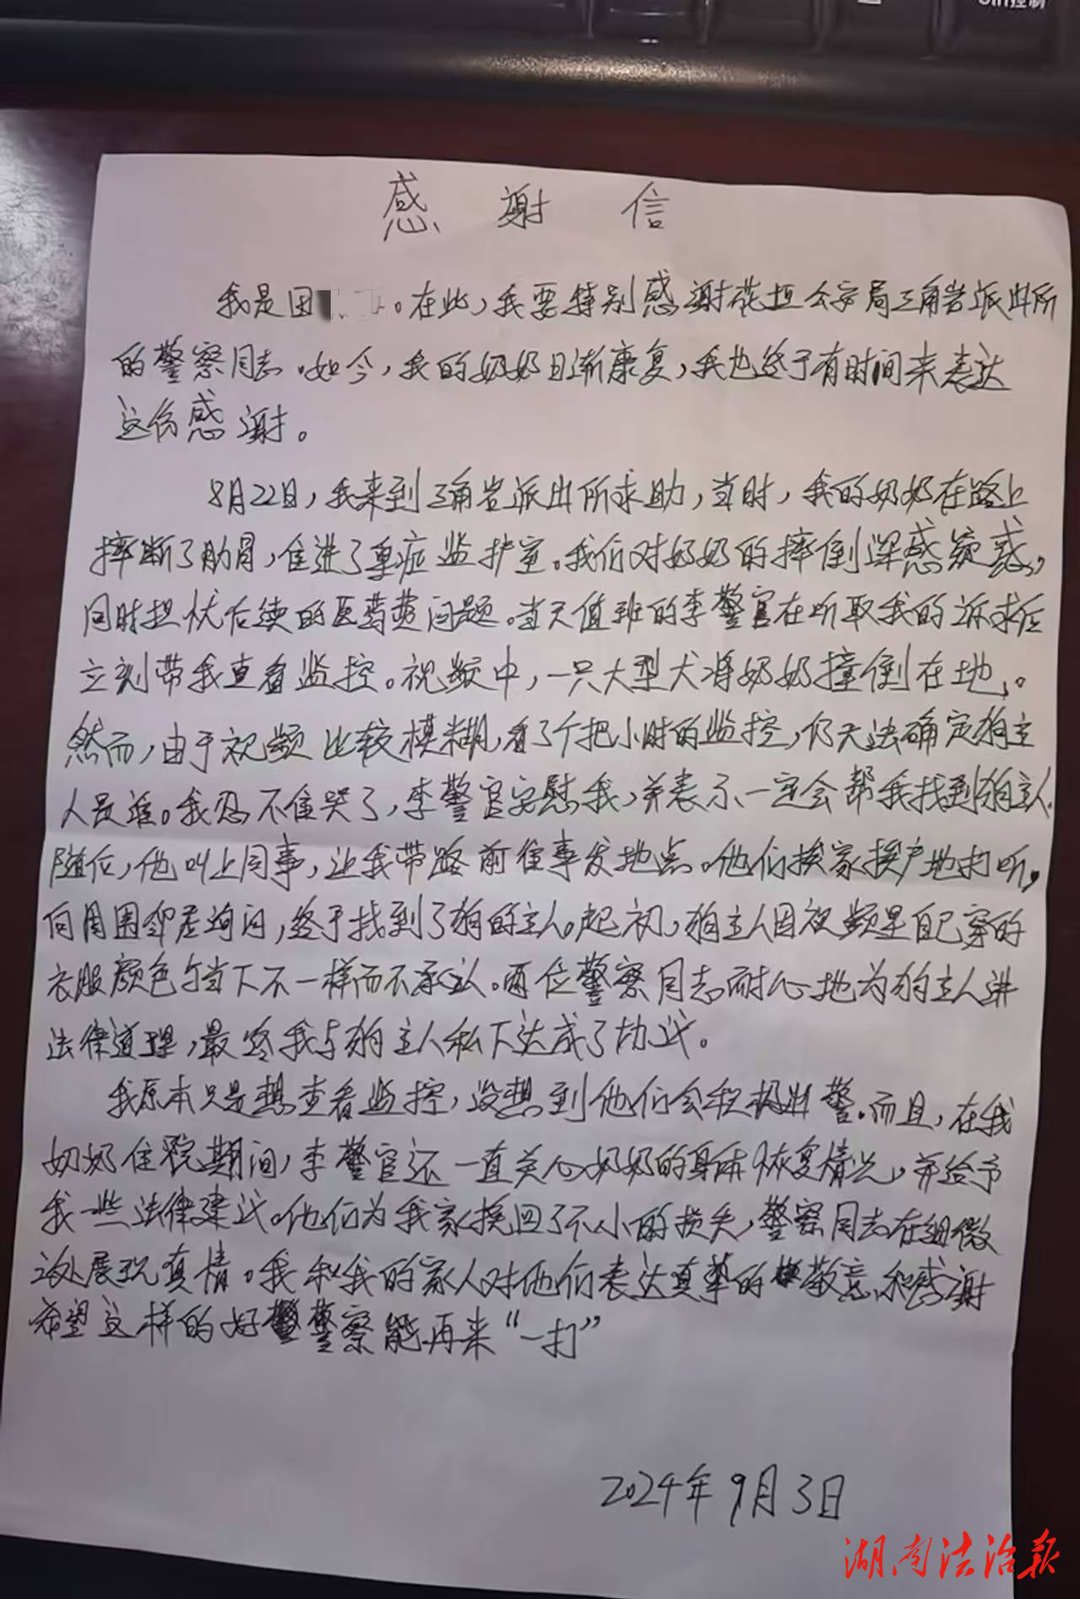 Ctrl控制
感谢信
我是田 。在此，我要特别感谢花垣公安局三角岩派出所
的警察同志。如今，我的奶奶日渐康复，我也终于有时间来表达
这份感谢。
8月22日，我来到三角岩派出所求助，当时，我的奶奶在路上
摔断了肋骨，住进了重症监护室。我们对奶奶的摔倒深感疑惑，
同时担忧后续的医药费问题。当天值班的李警官在听取我的诉求后
立刻带我查看监控。视频中，一只大型犬将奶奶撞倒在地。
然而，由于视频比较模糊，看了个把小时的监控，仍无法确定狗主
人是谁。我忍不住哭了，李警官安慰我，并表示一定会帮我找到狗主人.
随后，他叫上同事，让我带路前往事发地点。他们挨家挨户地打听，
向周围邻居询问，终于找到了狗的主人。起初，狗主人因视频里自己穿的
衣服颜色与当下不一样而不承认。两位警察同志耐心地为狗主人讲
法律道理，最终我与狗主人私下达成了协议。
我原本只是想查看监控，没想到他们会积极出警.而且，在我
奶奶住院期间，李警官还一直关心奶奶的身体恢复情况，并给予
我一些法律建议。他们为我家挽回了不小的损失，警察同志在细微
处展现真情。我和我的家人对他们表达真挚的敬意和感谢
希望这样的好警察能再来“一打”
2024年9月3日
湖南法治报